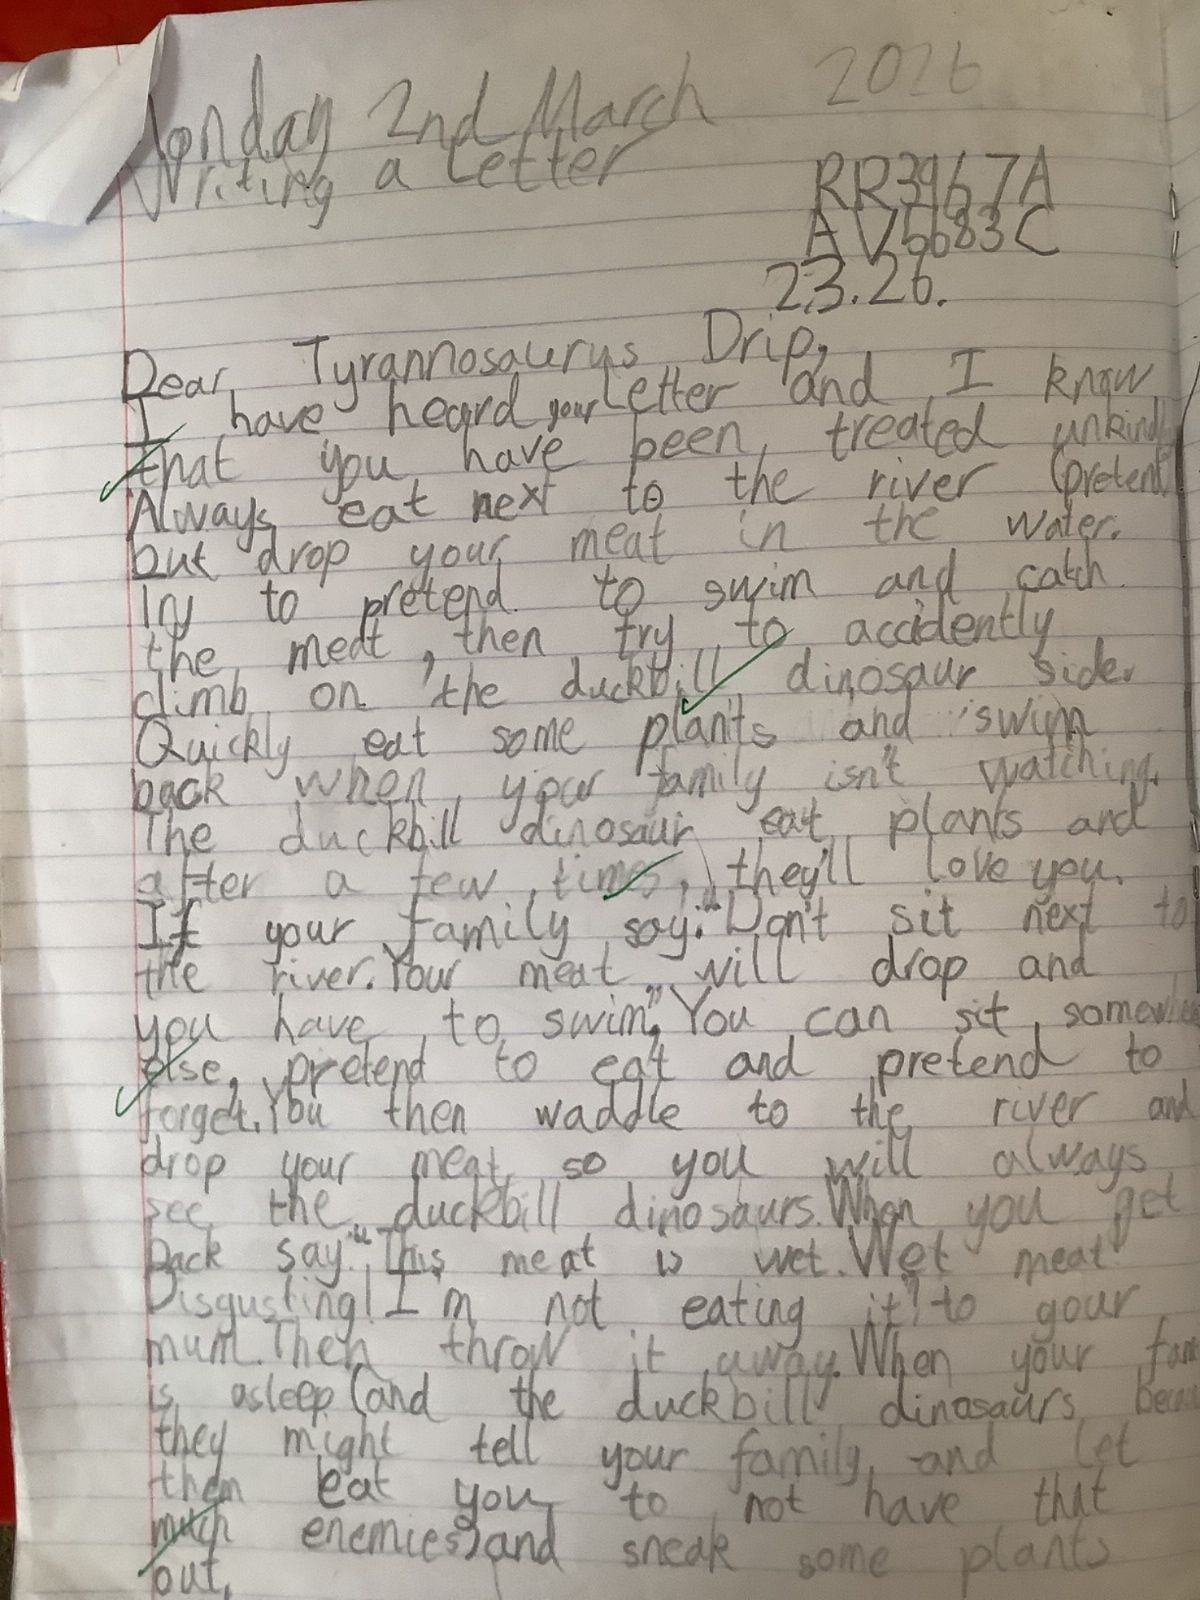 Monday 2nd March 2026
Writing a Letter
RR3967A
AV5683C
2.3.26.
Dear Tyrannosaurus Drip,
I have heard your letter and I know
that you have been treated unkind
Always eat next to the river (pretend
but drop your meat in the water.
Try to pretend to swim and catch
the meat, then try to accidently
climb on the duckbill dinosaur side.
Quickly eat some plants and swim
back when your family isn't watching.
The duckbill dinosaur eat plants and
after a few times, they'll love you.
If your family say:"Don't sit next to
the river. Your meat will drop and
you have to swim." You can sit
else, pretend to eat and pretend to
forget. You then waddle to the river and
drop your meat so you will always
see the duckbill dinosaurs. When you get
back say:"This meat is wet. Wet meat
Disgusting! I'm not eating it!" to your
mum. Then throw it away. When your fam
is asleep (and the duckbill dinosaurs
they might tell your family and let
them eat you to not have that
much enemies) and sneak some plants
out.